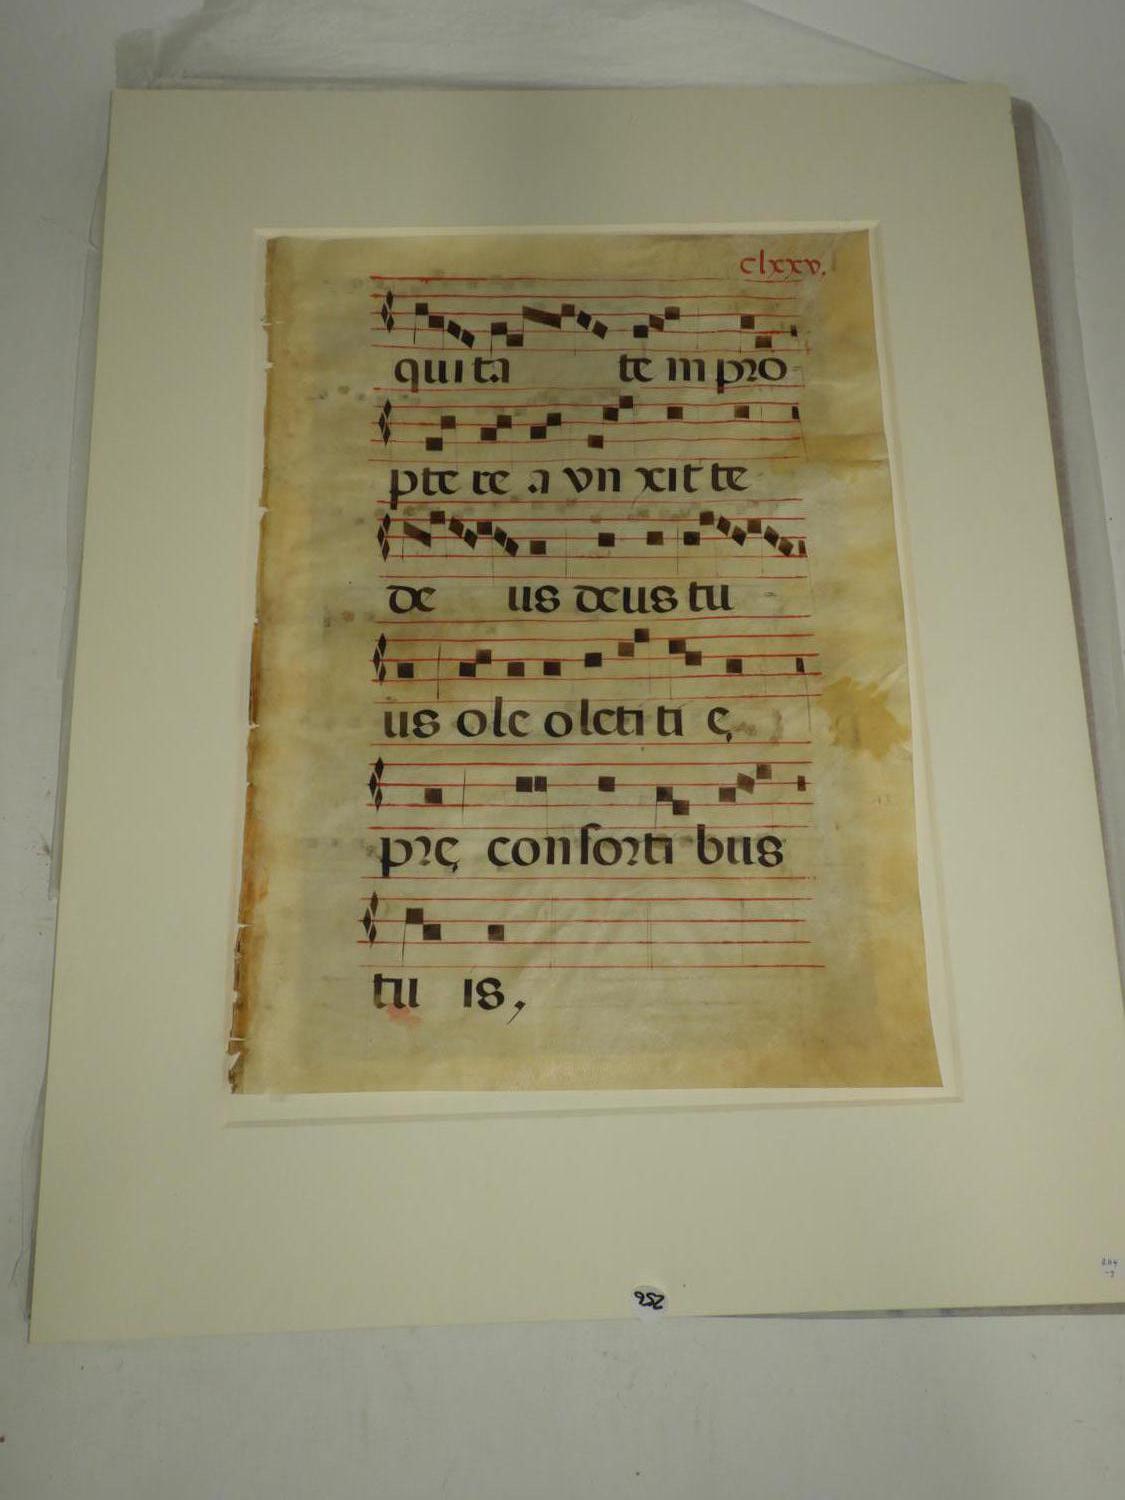 clxxv.
quita te in pro
pte re a vn xit te
de us deus tu
us ole o leti ti ę
prę consorti bus
tu is,
256